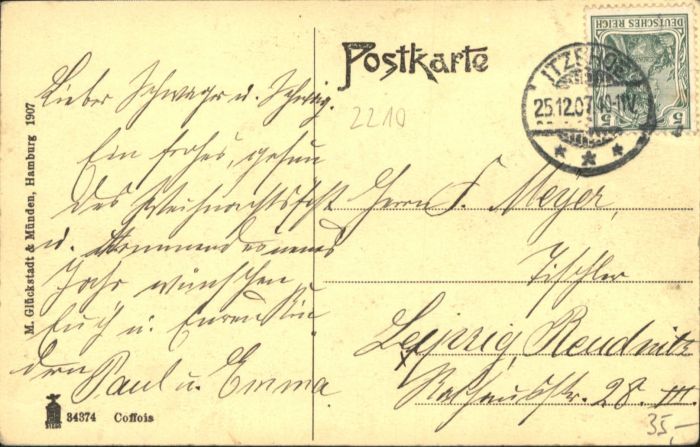 Postkarte
Lieber Schwager u. Schwäg.
Ein frohes, gesun
des Weihnachtsfest
u. kommendes neues
Jahr wünschen
Euch u. Euren Kin
dern
Paul u. Emma
2210
DEUTSCHES REICH
5 5
ITZEHOE
25.12.07. 10-11V.
* * *
Herrn F. Meyer,
Tischler
Leipzig Reudnitz
Rathausstr. 28. III.
35,-
M. Glückstadt & Münden, Hamburg 1907
34374 Coffois